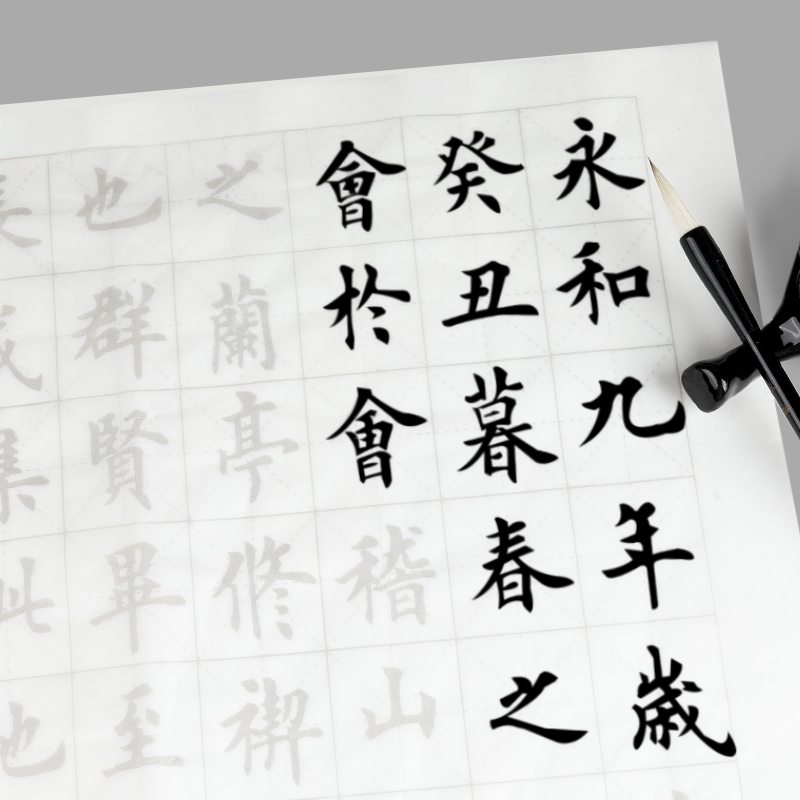 永和九年歲
癸丑暮春之
會於會稽山
之蘭亭修禊
也群賢畢至
長咸集此地